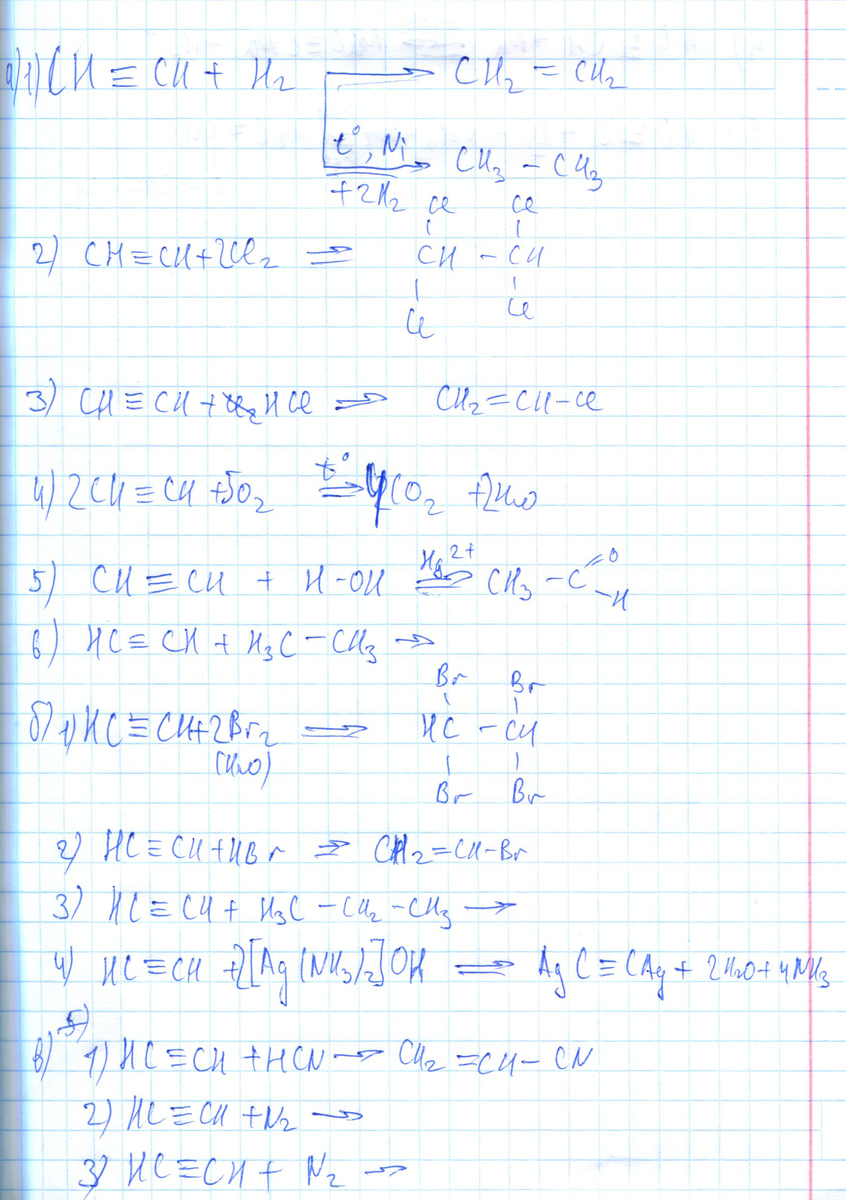 а) 1) CH ≡ CH + H₂ → CH₂ = CH₂
t°, Ni → CH₃ – CH₃
+2H₂
Cl Cl
2) CH ≡ CH + 2Cl₂ ⇒ CH – CH
Cl Cl
3) CH ≡ CH + HCl ⇒ CH₂ = CH – Cl
4) 2CH ≡ CH + 5O₂ t° ⇒ 4CO₂ + 2H₂O
5) CH ≡ CH + H – OH Hg²⁺ ⇒ CH₃ – C =O –H
6) HC ≡ CH + H₃C – CH₃ →
Br Br
б) 1) HC ≡ CH + 2Br₂ ⇒ HC – CH
(H₂O) Br Br
2) HC ≡ CH + HBr ⇒ CH₂ = CH – Br
3) HC ≡ CH + H₃C – CH₂ – CH₃ →
4) HC ≡ CH + 2[Ag(NH₃)₂]OH ⇒ AgC ≡ CAg + 2H₂O + 4NH₃
5)
в) 1) HC ≡ CH + HCN → CH₂ = CH – CN
2) HC ≡ CH + N₂ →
3) HC ≡ CH + N₂ →